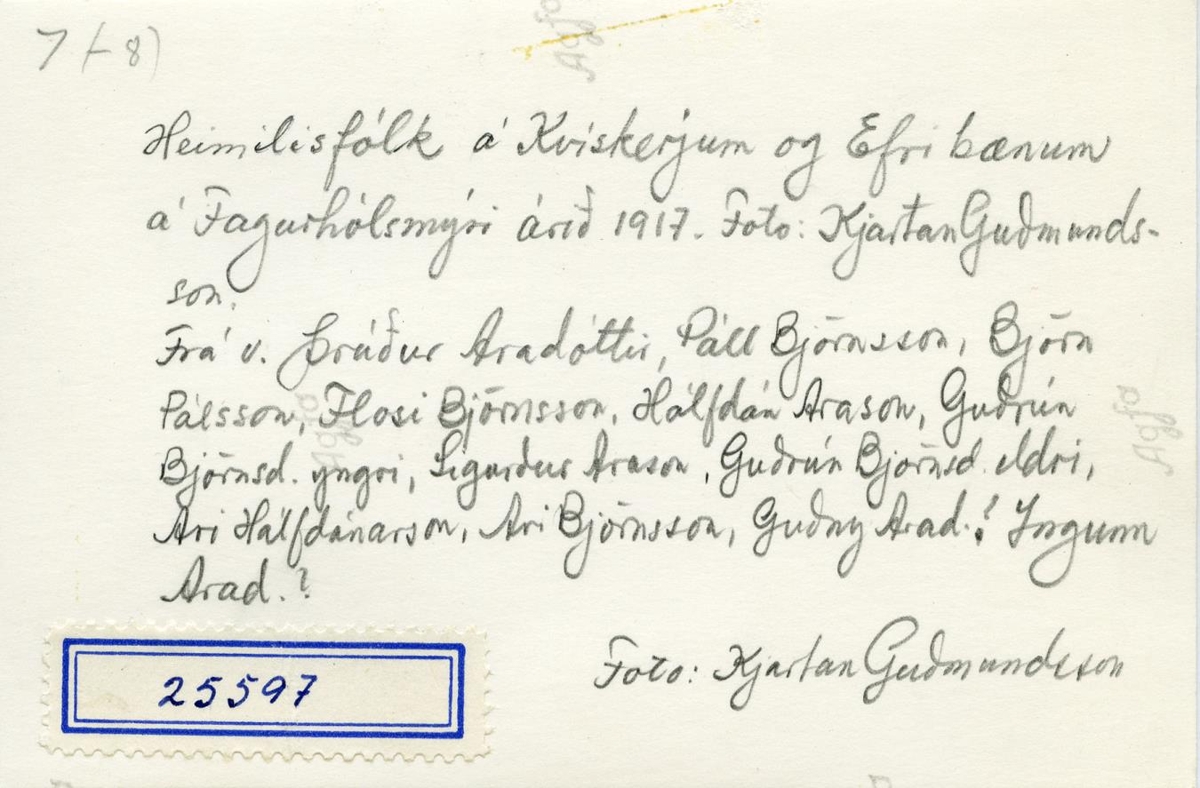 7 (-8)
Heimilisfólk á Kvískerjum og Efri bænum
á Fagurhólsmýri árið 1917. Foto: Kjartan Guðmunds-
son.
Frá v. Þrúður Aradóttir, Páll Björnsson, Björn
Pálsson, Flosi Björnsson, Hálfdán Arason, Guðrún
Björnsd. yngri, Sigurður Arason, Guðrún Björnsd. eldri,
Ari Hálfdánarson, Ari Björnsson, Guðny Arad.? Ingunn
Arad.?
Foto: Kjartan Guðmundsson
25597
Agfa
Agfa
Agfa